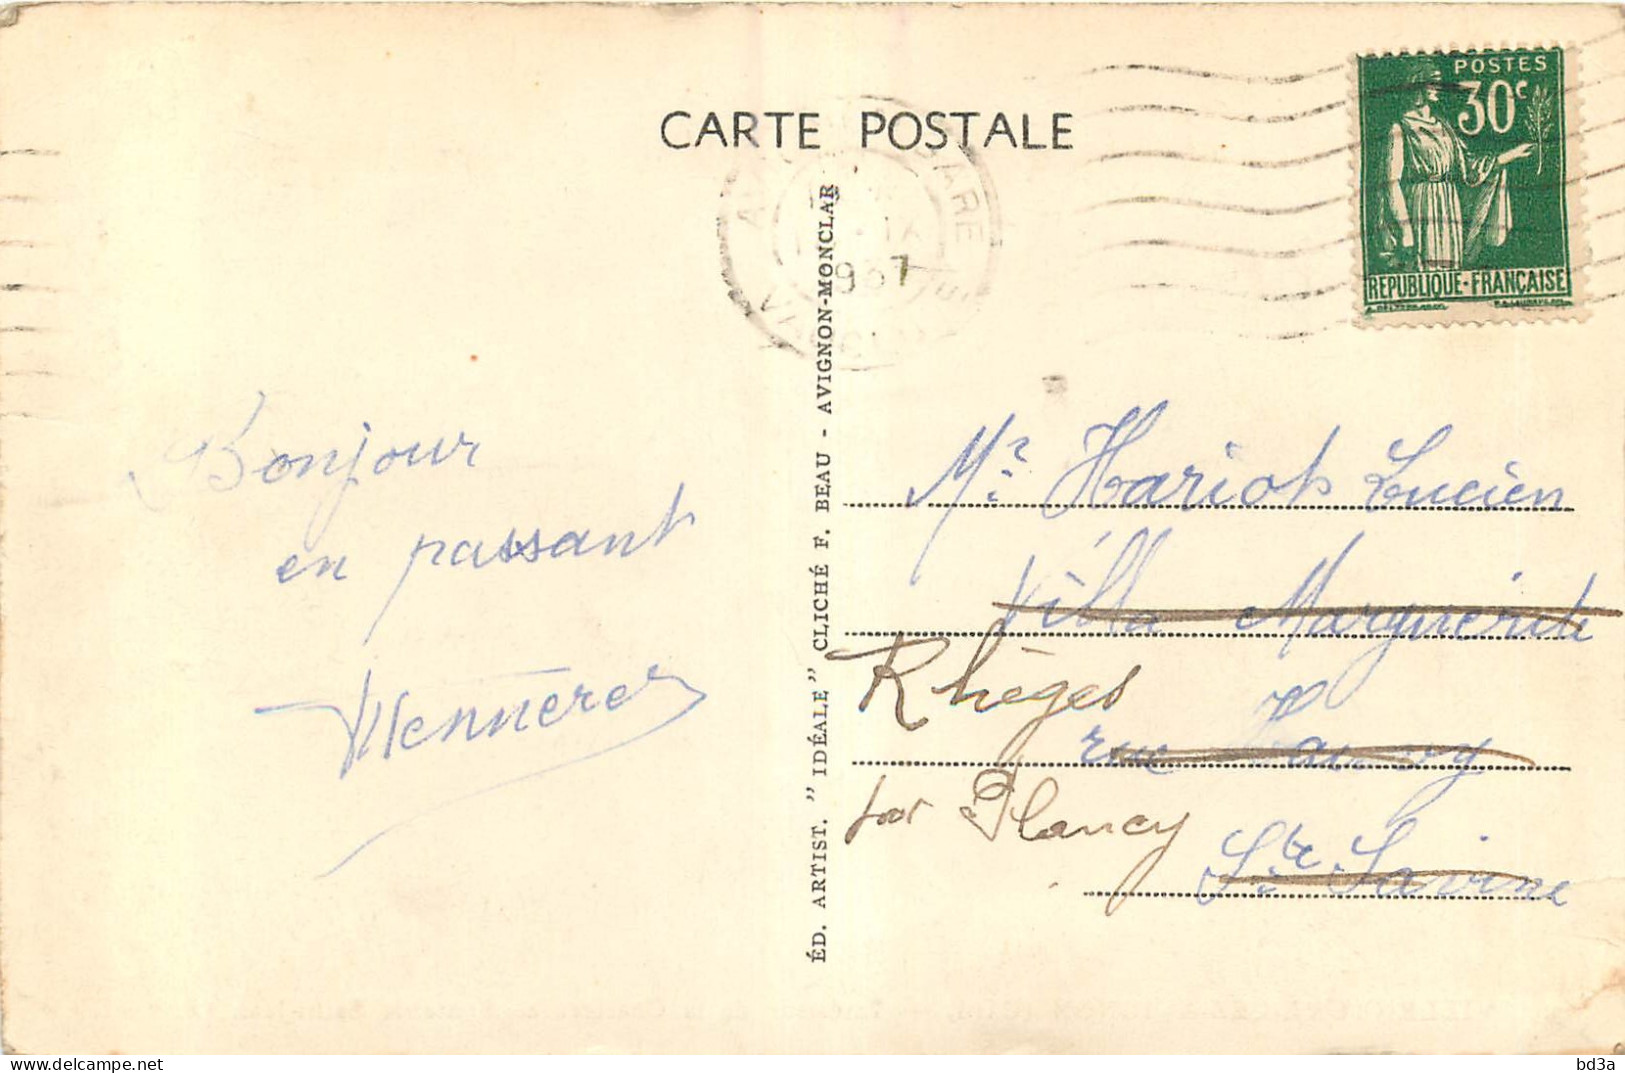 CARTE POSTALE
POSTES
30c
REPUBLIQUE-FRANÇAISE
GARE
1937
ÉD. ARTIST. "IDÉALE" CLICHÉ F. BEAU - AVIGNON-MONCLAR
Bonjour
en passant
Mr Hariot Lucien
Villa Marguerite
Rhèges
rue
par Plancy
Ste Savine
bd3a